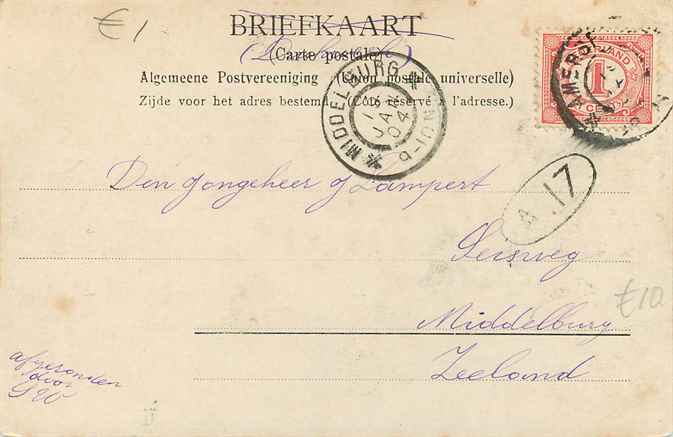 €1
BRIEFKAART
(Carte postale)
Algemeene Postvereeniging (Union postale universelle)
Zijde voor het adres bestemd. (Côté réservé à l'adresse.)
MIDDELBURG
JAN
04
1
CENT
Den Jongeheer J Lampert
A 17
Seisweg
€10
Middelburg
Zeeland
afgezonden
door